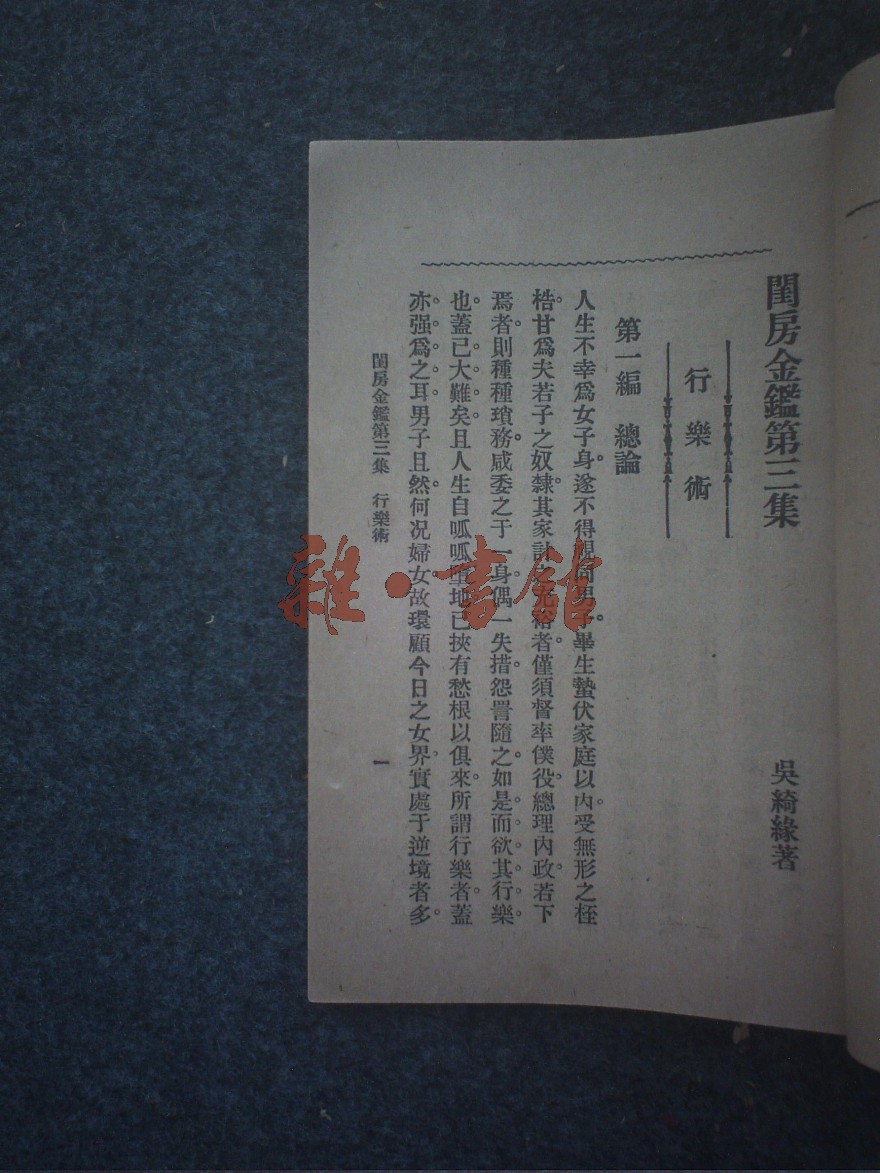 閨房金鑑第三集
吳綺緣著
行樂術
第一編 總論
人生不幸爲女子身。遂不得視同男子。畢生蟄伏家庭以內。受無形之桎
梏。甘爲夫若子之奴隸。其家計者。僅須督率僕役。總理內政。若下
焉者。則種種瑣務。咸委之于一身。偶一失措。怨詈隨之。如是而欲其行樂。
也。蓋已大難矣。且人生自呱呱墮地。已挾有愁根以俱來。所謂行樂者。蓋
亦强爲之耳。男子且然。何況婦女。故環顧今日之女界。實處于逆境者多。
閨房金鑑第三集 行樂術
一
雜·書館